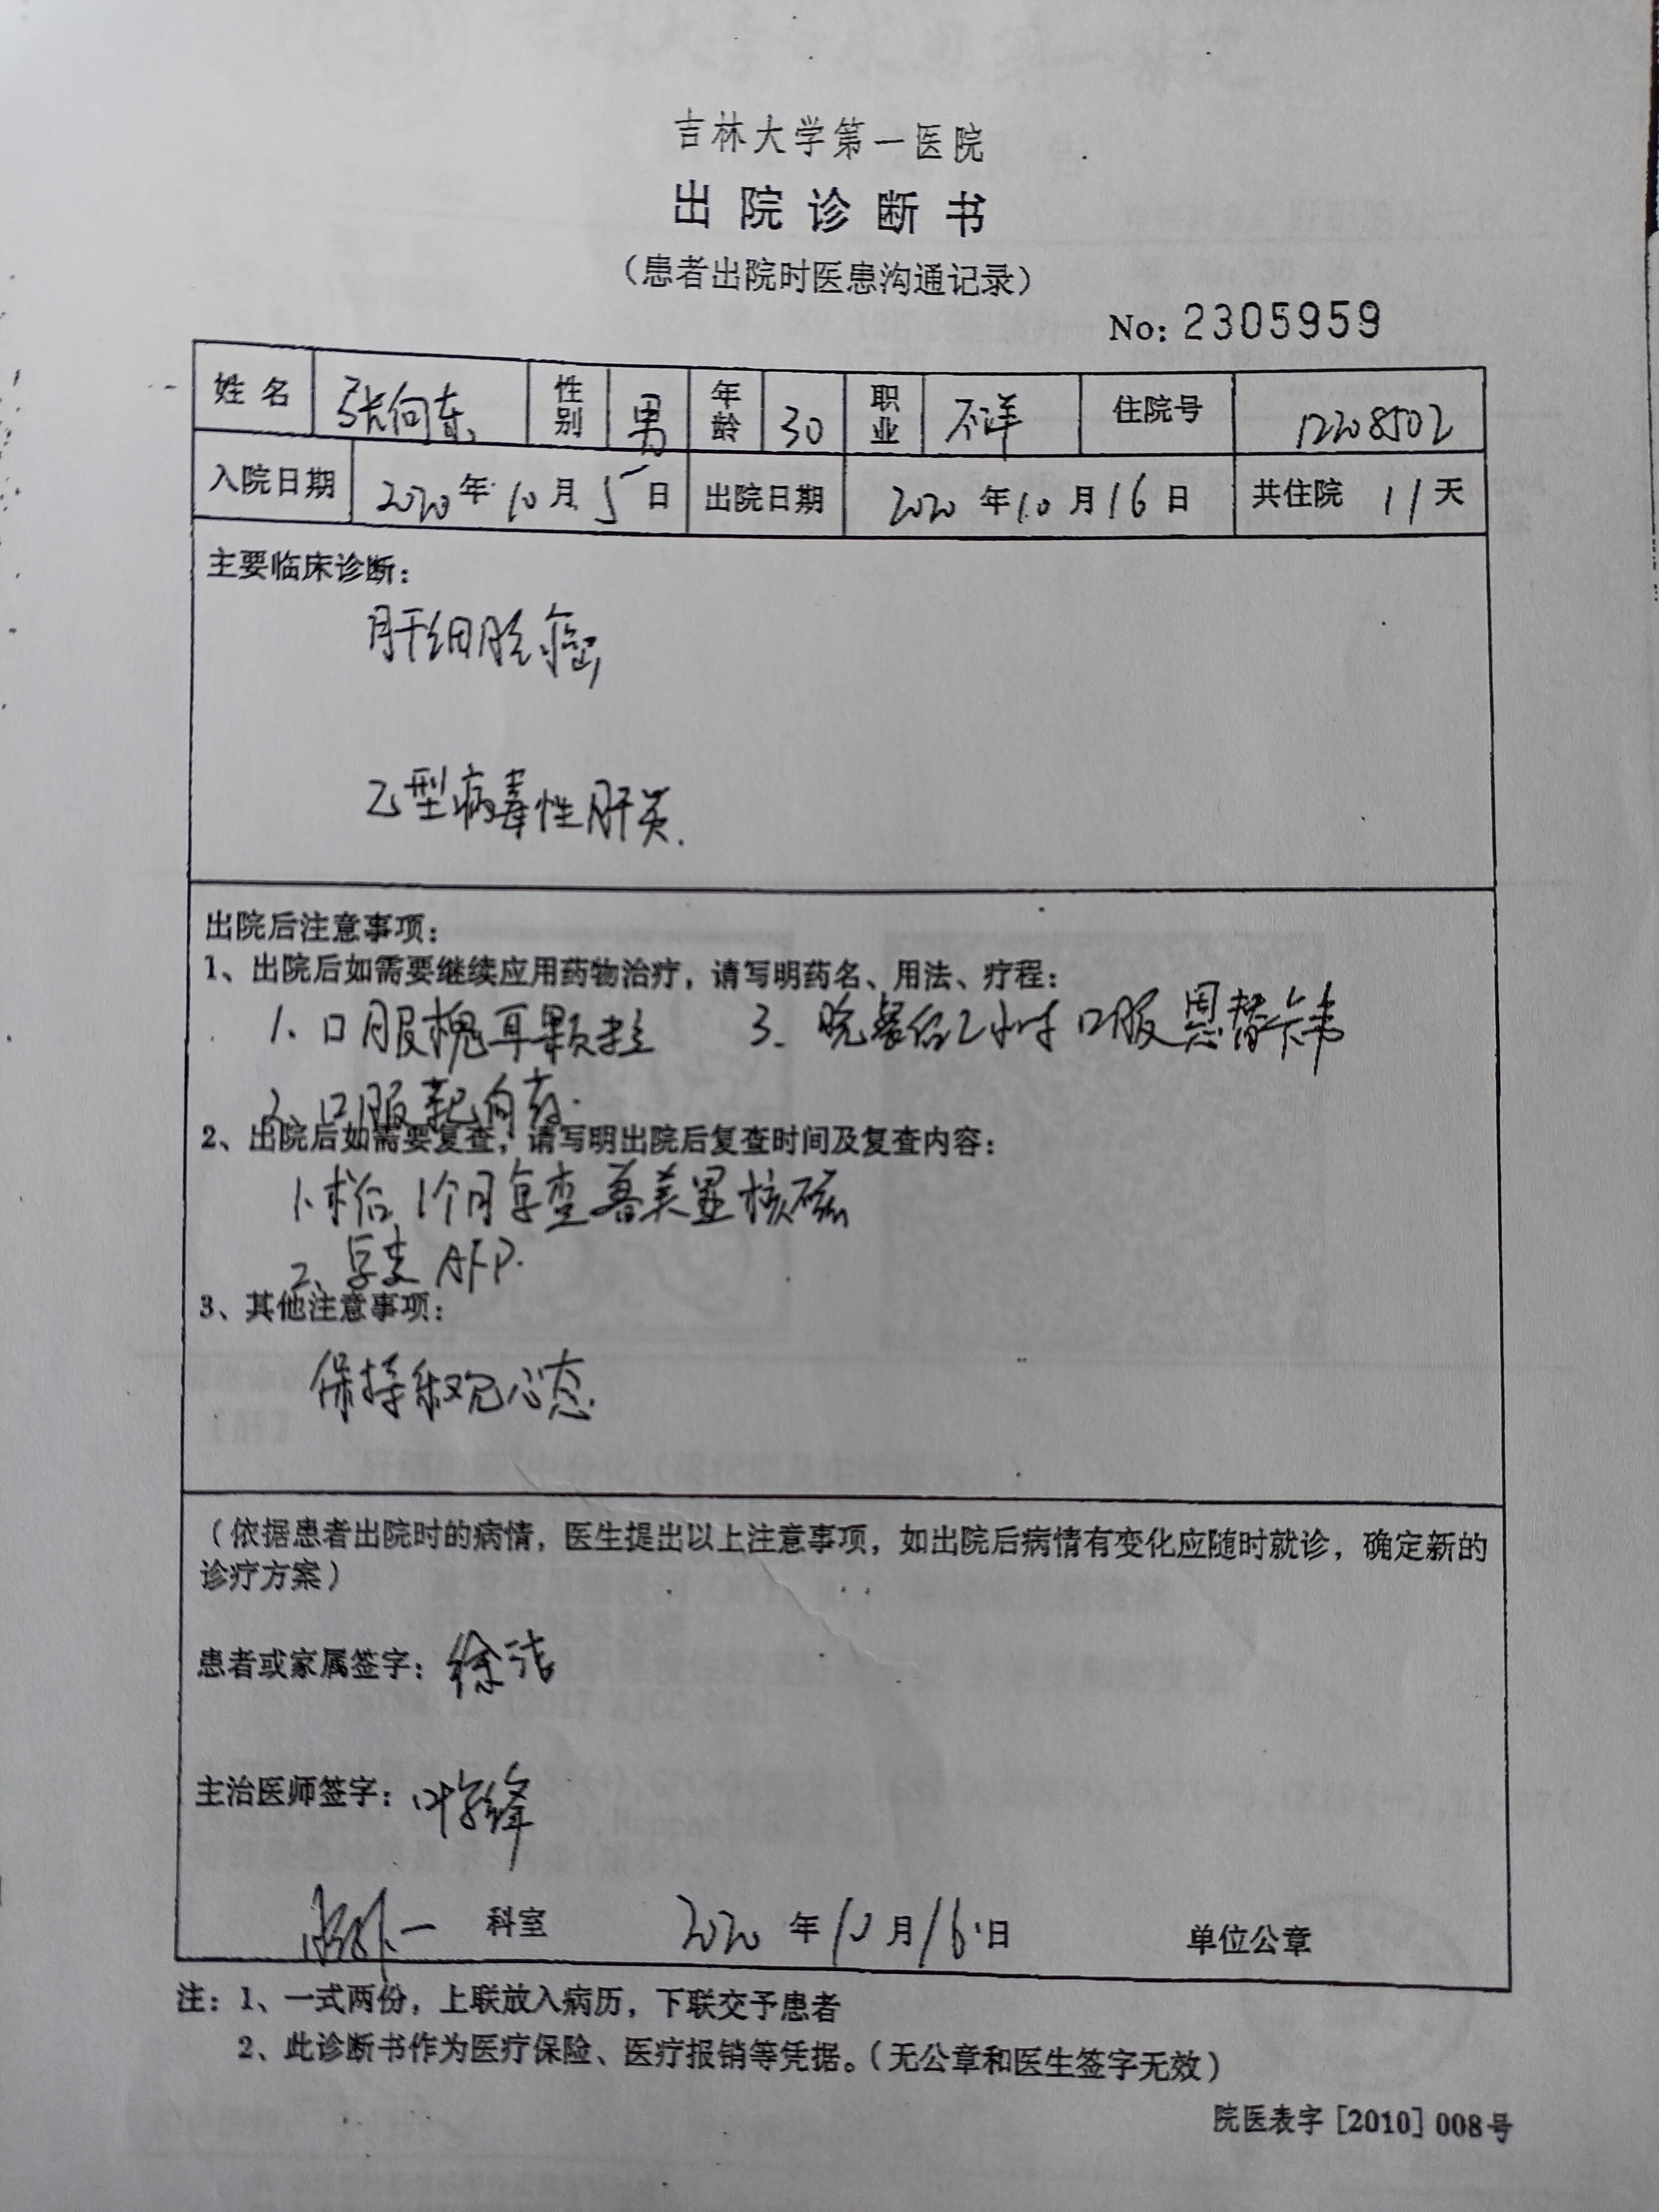 吉林大学第一医院
出院诊断书
（患者出院时医患沟通记录）
No: 2305959
姓名 张向东 性别 男 年龄 30 职业 不详 住院号 12208502
入院日期 2020年10月15日 出院日期 2020年10月16日 共住院 11天
主要临床诊断：
肝细胞癌
乙型病毒性肝炎.
出院后注意事项：
1、出院后如需要继续应用药物治疗，请写明药名、用法、疗程：
1. 口服槐耳颗粒 3. 晚餐后2小时 口服 恩替卡韦
2. 口服靶向药.
2、出院后如需要复查，请写明出院后复查时间及复查内容：
1. 术后1个月复查普美显核磁
2. 复查 AFP.
3、其他注意事项：
保持乐观心态.
（依据患者出院时的病情，医生提出以上注意事项，如出院后病情有变化应随时就诊，确定新的
诊疗方案）
患者或家属签字：徐洁
主治医师签字：
科室 2020年10月16日 单位公章
注：1、一式两份，上联放入病历，下联交予患者
2、此诊断书作为医疗保险、医疗报销等凭据。（无公章和医生签字无效）
院医表字［2010］008号